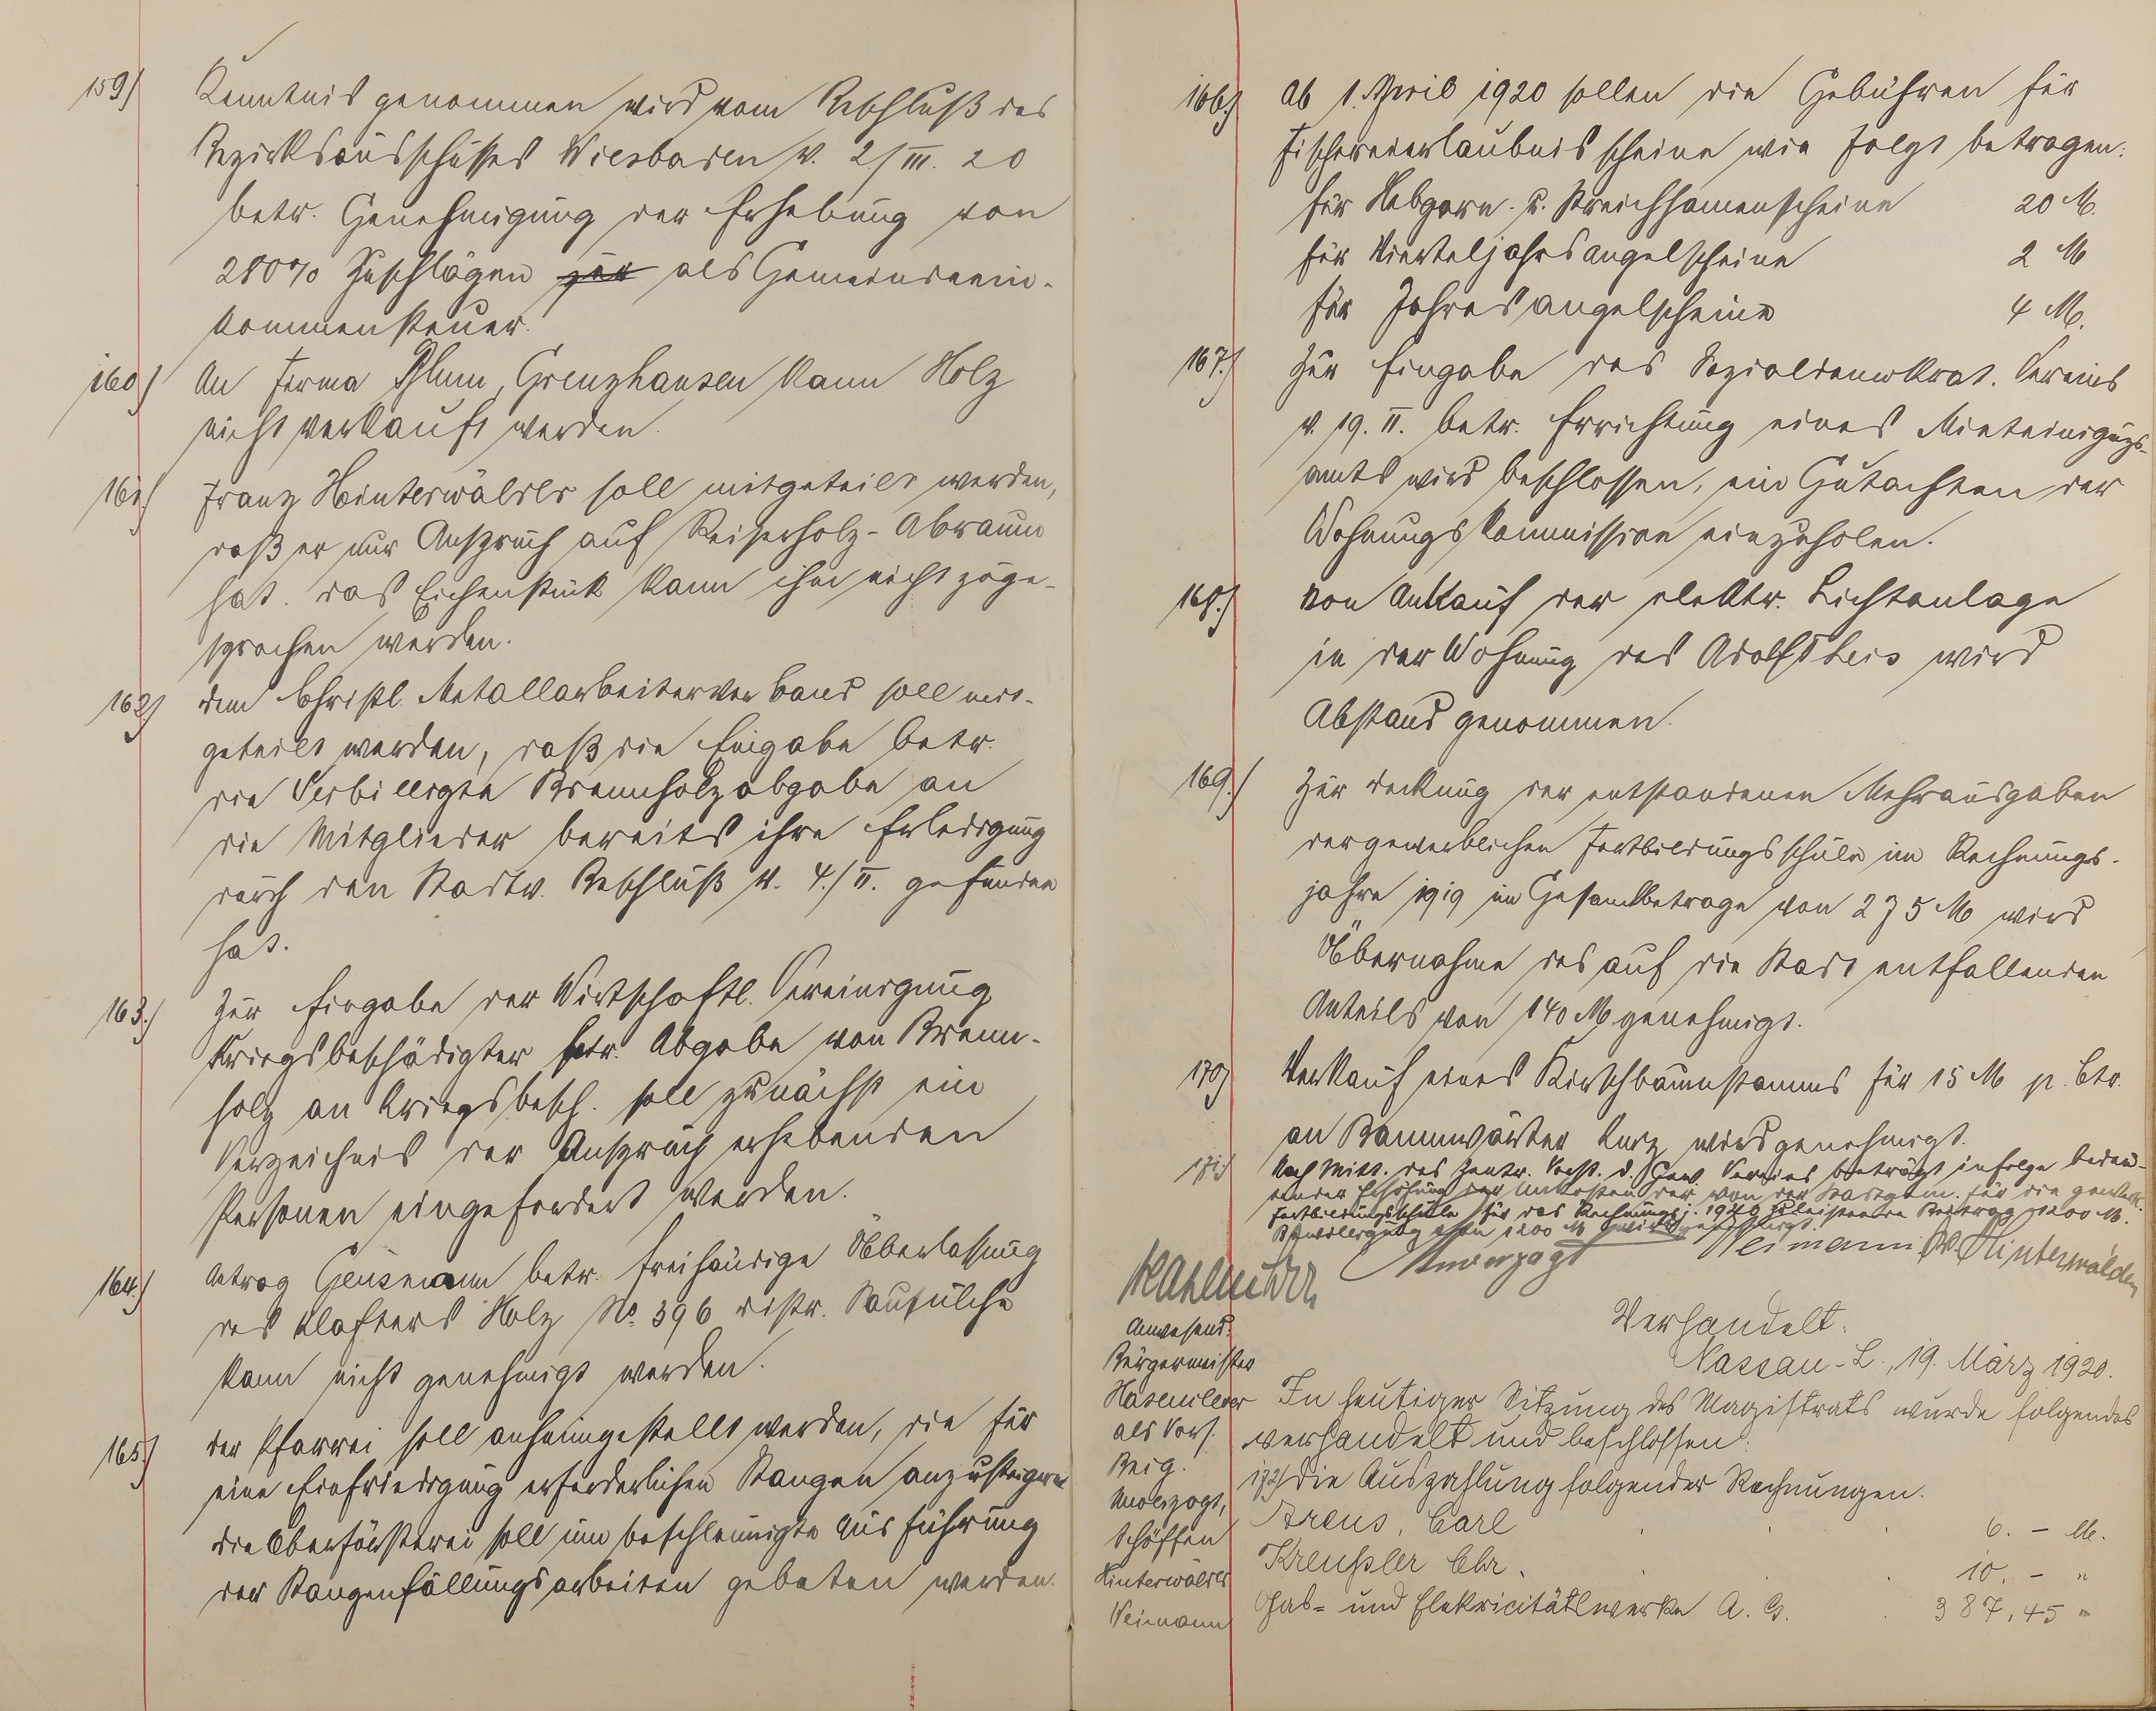 159) Kenntnis genommen wird vom Beschluß des
Bezirksausschusses Wiesbaden v. 2/III. 20
betr. Genehmigung der Erhebung von
280% Zuschlägen zur als Gemeindeein-
kommensteuer.
160) An Firma Blum, Grenzhausen kann Holz
nicht verkauft werden.
161) Franz Hinterwälder soll mitgeteilt werden,
daß er nur Anspruch auf Reiserholz-Abraum
hat. das Eichenstück kann ihm nicht zuge-
sprochen werden.
162) dem Christl. Metallarbeiterverband soll mit-
geteilt werden, daß die Eingabe betr.
die Verbilligte Brennholzabgabe an
die Mitglieder bereits ihre Erledigung
durch den Stadtv. Beschluß v. 4./II. gefunden
hat.
163.) Zur Eingabe der Wirtschaftl. Vereinigung
Kriegsbeschädigter betr. Abgabe von Brenn-
holz an Kriegsbesch. soll zunächst ein
Verzeichnis der Anspruch erhebenden
Personen eingefordert werden.
164.) Antrag Geusmann betr. freihändige Überlassung
des Klafters Holz No. 396 distr.
kann nicht genehmigt werden.
165.) der Pfarrei soll anheimgestellt werden, die für
eine Einfriedigung erforderlichen Stangen anzusteigern
die Oberförsterei soll um beschleunigte Ausführung
der Stangenfällungsarbeiten gebeten werden.
166.) Ab 1. April 1920 sollen die Gebühren für
Fischereierlaubnisscheine wie folgt betragen:
für Hebgarn- u. Streichhamenscheine 20 M.
für Vierteljahrsangelscheine 2 M
für Jahresangelscheine 4 M.
167.) Zur Eingabe des Sozialdemokrat. Vereins
v. 19. II. betr. Errichtung eines Mieteinigungs-
amts wird beschlossen, ein Gutachten der
Wohnungskommission einzuholen.
168.) Von Ankauf der elektr. Lichtanlage
in der Wohnung des Adolf Theis wird
Abstand genommen.
169.) Zur deckung der entstandenen Mehrausgaben
der gewerblichen Fortbildungsschule im Rechnungs-
jahre 1919 im Gesamtbetrage von 275 M wird
Übernahme des auf die Stadt entfallenden
Anteils von 140 M genehmigt.
170) Verkauf eines Kirschbaumstamms für 15 M p. Ctr.
an Baumwärter Kurz wird genehmigt.
171) Nach Mitt. des Zentr. Vorst. d. Gew. Vereins beträgt infolge bedeu-
tender Erhöhung der Unkosten der von der Stadtgem. für die gewerbl.
Fortbildungsschule für das Rechnungsj. 1920 zu leistende Beitrag 1200 M.
Bewilligung von 1200 M wird genehmigt.
Hasenclever Unverzagt Weimann W. Hinterwälder
Verhandelt.
Nassau-L., 19. März 1920.
Anwesend:
Bürgermeister
Hasenclever
als Vors.
Beig.
Unverzagt,
Schöffen
Hinterwälder
Weimann
In heutiger Sitzung des Magistrats wurde folgendes
verhandelt und beschlossen:
172) die Auszahlung folgender Rechnungen.
Arens, Carl 6. – M.
Kreußler Chr. 10. – "
Gas- und Elektricitätswerke A. G. 387,45 "